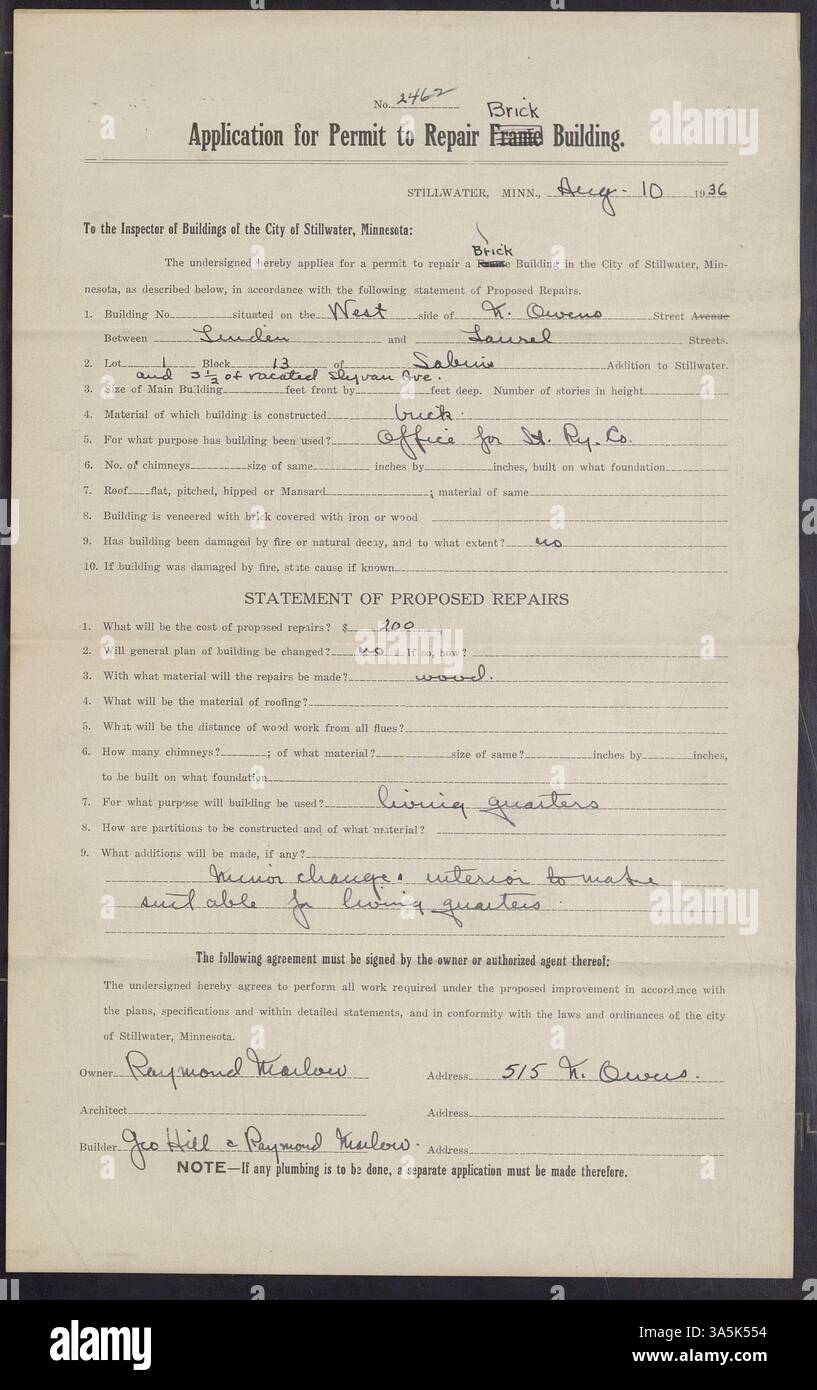 No. 2462
Brick
Application for Permit to Repair Frame Building.
STILLWATER, MINN., Aug. 10 1936
To the Inspector of Buildings of the City of Stillwater, Minnesota:
Brick
The undersigned hereby applies for a permit to repair a Frame Building in the City of Stillwater, Min-
nesota, as described below, in accordance with the following statement of Proposed Repairs.
1. Building No. situated on the West side of N. Owens Street Avenue
Between Linden and Laurel Streets.
2. Lot 1 Block 13 of Sabins Addition to Stillwater.
and S ½ of vacated Slyvan Ave.
3. Size of Main Building feet front by feet deep. Number of stories in height
4. Material of which building is constructed brick.
5. For what purpose has building been used? Office for St. Ry. Co.
6. No. of chimneys size of same inches by inches, built on what foundation
7. Roof flat, pitched, hipped or Mansard ; material of same
8. Building is veneered with brick covered with iron or wood
9. Has building been damaged by fire or natural decay, and to what extent? no
10. If building was damaged by fire, state cause if known
STATEMENT OF PROPOSED REPAIRS
1. What will be the cost of proposed repairs? $ 200
2. Will general plan of building be changed? no. If so, how?
3. With what material will the repairs be made? wood.
4. What will be the material of roofing?
5. What will be the distance of wood work from all flues?
6. How many chimneys? ; of what material? size of same? inches by inches,
to be built on what foundation
7. For what purpose will building be used? living quarters
8. How are partitions to be constructed and of what material?
9. What additions will be made, if any?
Minor changes interior to make
suitable for living quarters.
The following agreement must be signed by the owner or authorized agent thereof:
The undersigned hereby agrees to perform all work required under the proposed improvement in accordance with
the plans, specifications and within detailed statements, and in conformity with the laws and ordinances of the city
of Stillwater, Minnesota.
Owner Raymond Marlow Address 515 N. Owens.
Architect Address
Builder Geo Hill & Raymond Marlow. Address
NOTE—If any plumbing is to be done, a separate application must be made therefore.
alamy
Image ID: 3A5K554
www.alamy.com